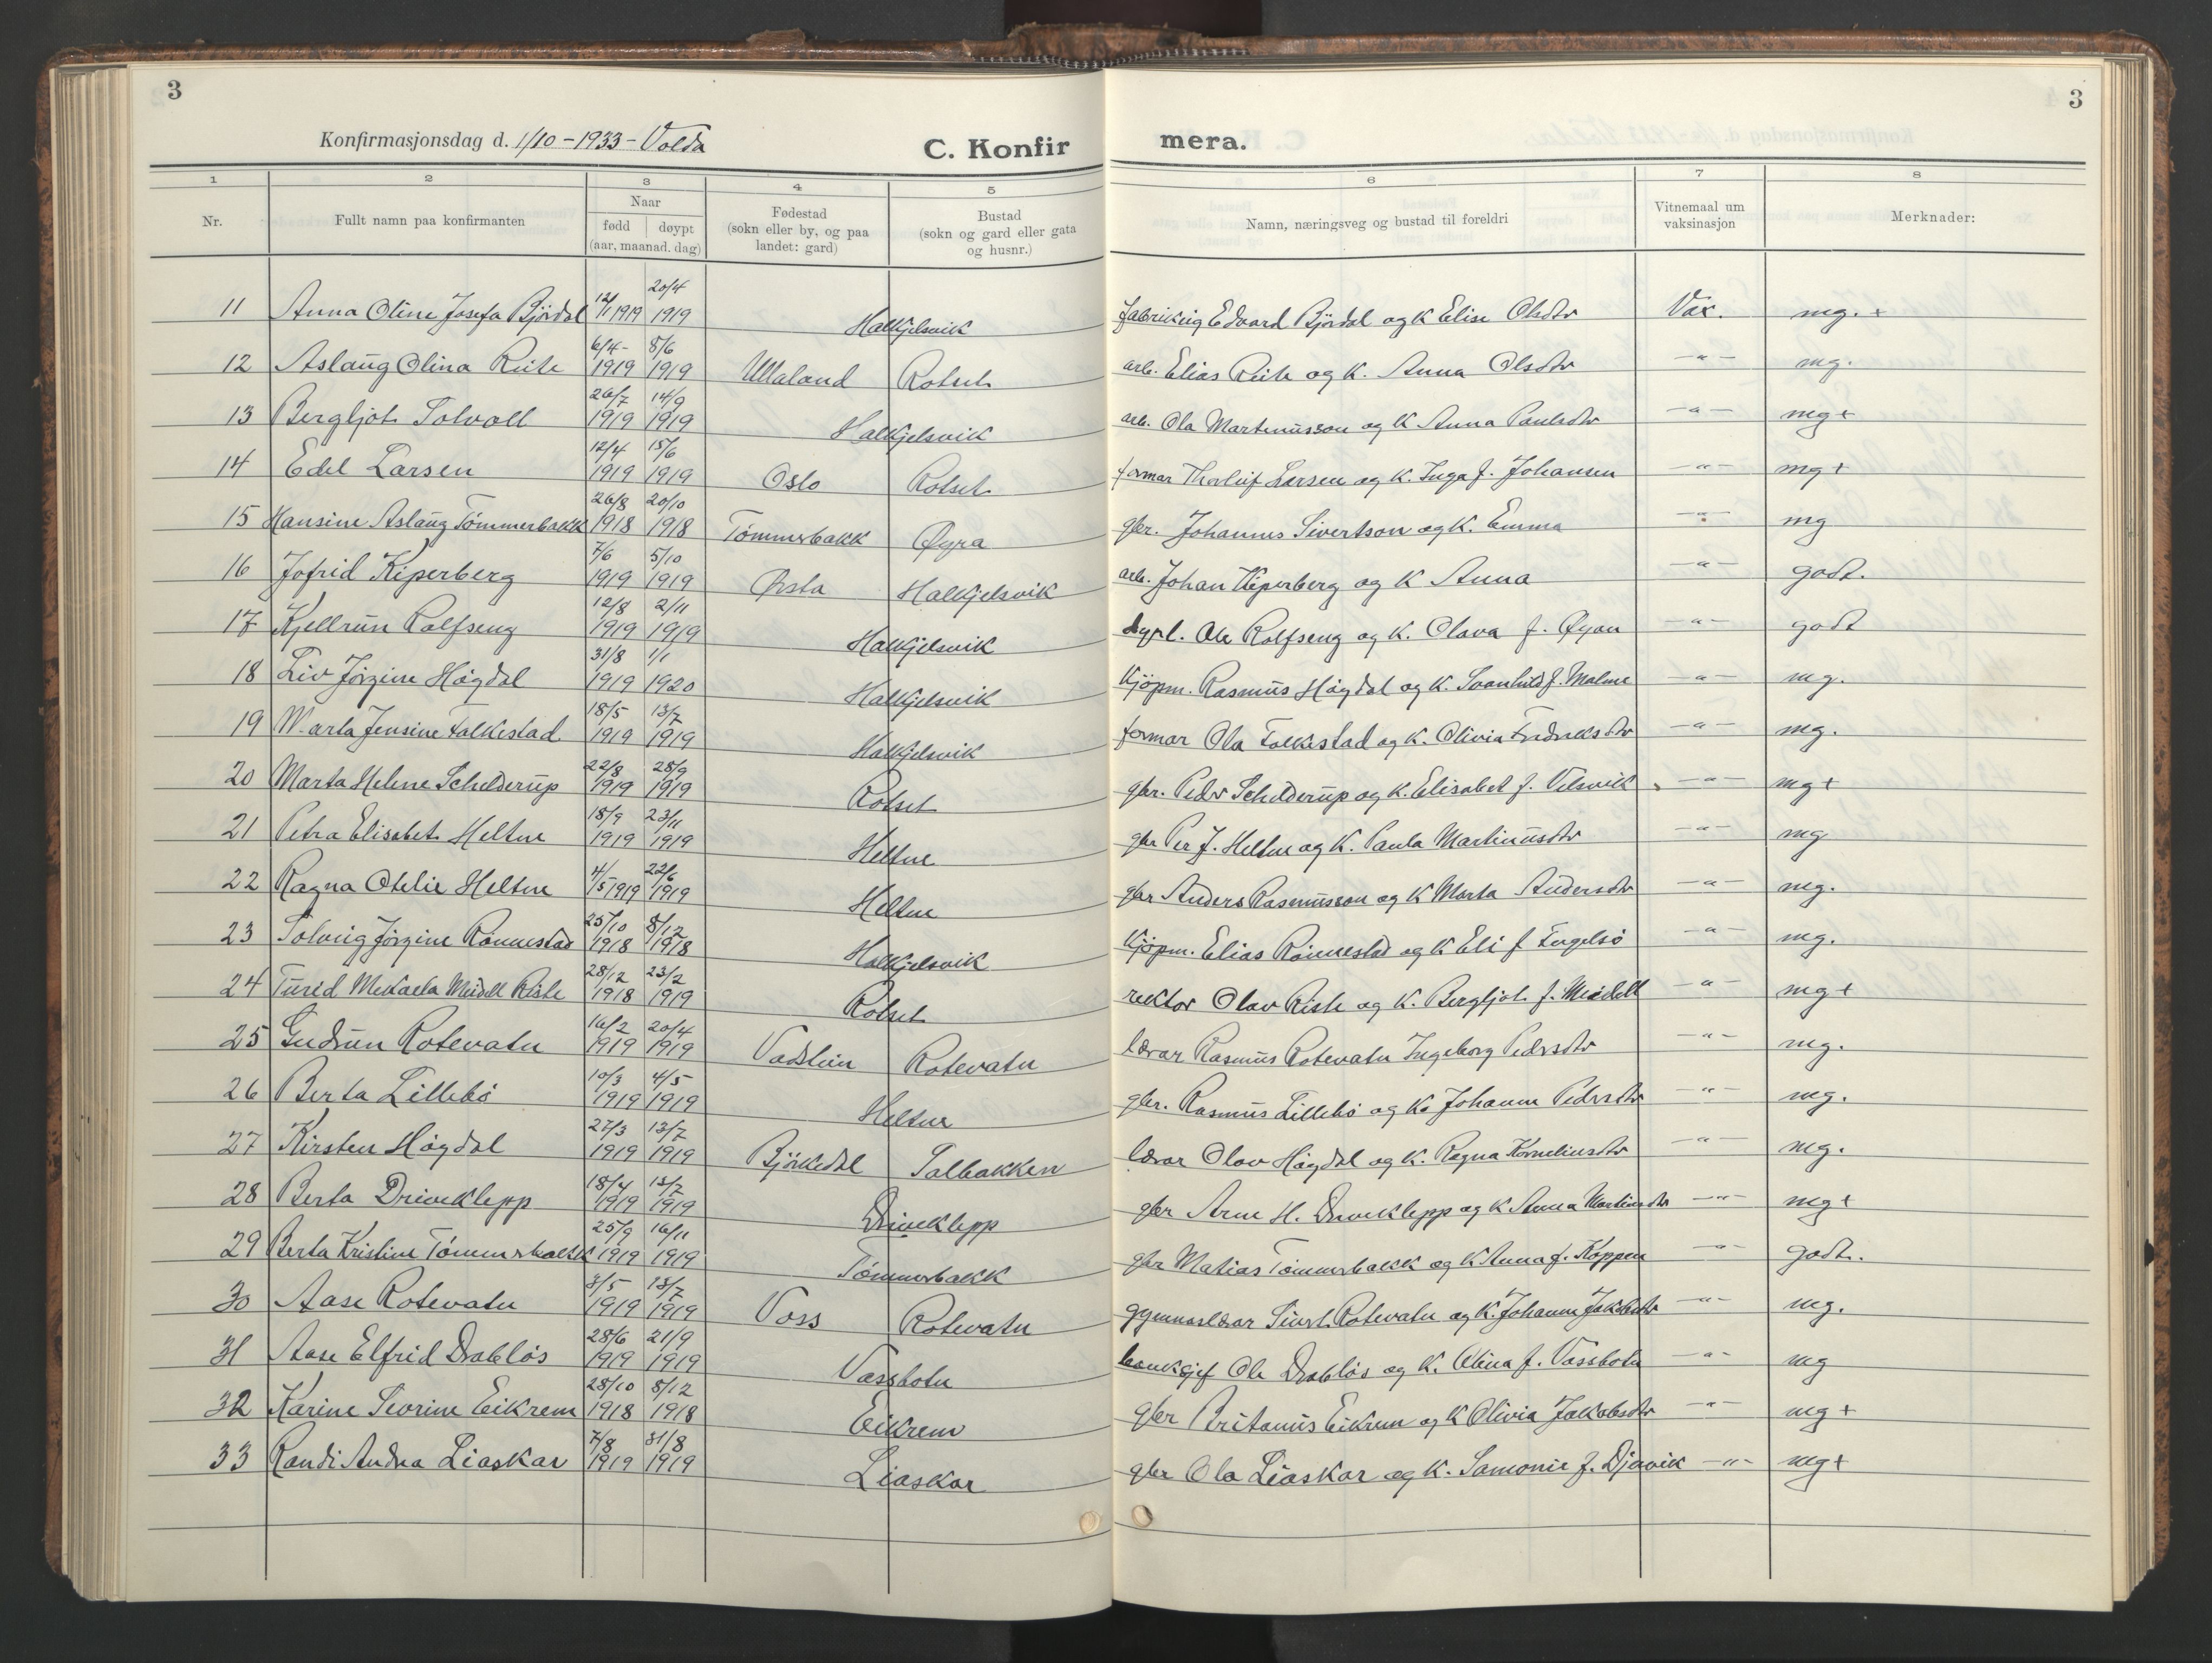 3
3
Konfirmasjonsdag d. 1/10-1933-Volda
C. Konfir mera.
1 2 3 4 5 6 7 8
Nr. Fullt namn paa konfirmanten Naar fødd døypt (aar, maanad. dag) Fødestad (sokn eller by, og paa landet: gard) Bustad (sokn og gard eller gata og husnr.) Namn, næringsveg og bustad til foreldri Vitnemaal um vaksinasjon Merknader:
11 Anna Oline Josefa Bjørdal 12/1 1919 20/4 1919 Halkjelsvik fabrikeig Edvard Bjørdal og K Elise Olsdtr Vax. mg. +
12 Aslaug Olina Reite 6/4- 1919 8/6 1919 Ulaland Rotset arb. Elias Reite og K. Anna Olsdtr -"- mg.
13 Bergljot Solvoll 26/7 1919 14/9 1919 Halkjelsvik arb. Ola Martinusson og K Anna Paulsdtr -"- mg+
14 Edel Larsen 12/4 1919 15/6 1919 Oslo Rotset formar Thorleif Larsen og K. Inga f. Johansen -"- mg+
15 Hansine Aslaug Tømmerbakk 26/8 1918 20/10 1918 Tømmerbakk Øyra gbr. Johannes Sivertson og K. Emma -"- mg
16 Jofrid Kiperberg 7/6 1919 5/10 1919 Ørsta Halkjelsvik arb. Johan Kiperberg og K Anna -"- godt.
17 Kjellrun Rolfseng 12/8 1919 2/11 1919 Halkjelsvik Ole Rolfseng og K. Olava f. Øyan -"- godt
18 Liv Jørgine Høgdal 31/8 1919 1/1 1920 Halkjelsvik Kjøpm. Rasmus Høgdal og K. Svanhild f. Malme -"- mg.
19 Marta Jensine Folkestad 18/5 1919 13/7 1919 Halkjelsvik formar Ola Folkestad og K. Olivia Fredriksdtr -"- mg.
20 Marta Helene Schelderup 22/8 1919 28/9 1919 Rotset gbr. Peder Schelderup og K. Elisabet f. Velsvik -"- mg+
21 Petra Elisabet Heltne 18/9 1919 23/11 1919 Heltne gbr Per J. Heltne og K. Paula Martinusdtr -"- mg
22 Ragna Otelie Heltne 4/5 1919 22/6 1919 Heltne gbr Anders Rasmusson og K Marta Andersdtr -"- mg.
23 Solveig Jørgine Rønnestad 25/10 1918 8/12 1918 Halkjelsvik Kjøpm. Elias Rønnestad og K Eli f Engelsø -"- mg.
24 Turid Mekaela Meidell Riste 28/12 1918 23/2 1919 Rotset rektor Olav Riste og K. Bergljot f. Meidell -"- mg+
25 Gudrun Rotevatn 16/2 1919 20/4 1919 Vadstein Rotevatn lærar Rasmus Rotevatn Ingeborg Pedersdtr -"- mg.
26 Berta Lillebø 10/3 1919 4/5 1919 Heltne gbr. Rasmus Lillebø og K. Johanne Pedersdtr -"- mg.
27 Kirsten Høgdal 27/3 1919 13/7 1919 Bjørkedal Solbakken lærar Olav Høgdal og K. Ragna Korneliusdtr -"- mg.
28 Berta Driveklepp 18/4 1919 13/7 1919 Driveklepp gbr Arne H. Driveklepp og K Anna Martinusdtr -"- mg+
29 Berta Kristine Tømmerbakk 25/9 1919 16/11 1919 Tømmerbakk gbr Matias Tømmerbakk og K Anna f. Koppen -"- godt.
30 Aase Rotevatn 3/5 1919 13/7 1919 Voss Rotevatn gymnaslærar Sivert Rotevatn og K. Johanne Jakobsdtr -"- mg.
31 Aase Elfrid Drabløs 28/6 1919 21/9 1919 Vassbotn banksjef Ole Drabløs og K. Olina f. Vassbotn -"- mg
32 Karine Sevrine Eikrem 28/10 1918 8/12 1918 Eikrem gbr Britanus Eikrem og K Olivia Jakobsdtr -"- mg+
33 Randi Andrea Liaskar 7/8 1919 31/8 1919 Liaskar gbr Ola Liaskar og K. Samonie f. Djuvik -"- mg+